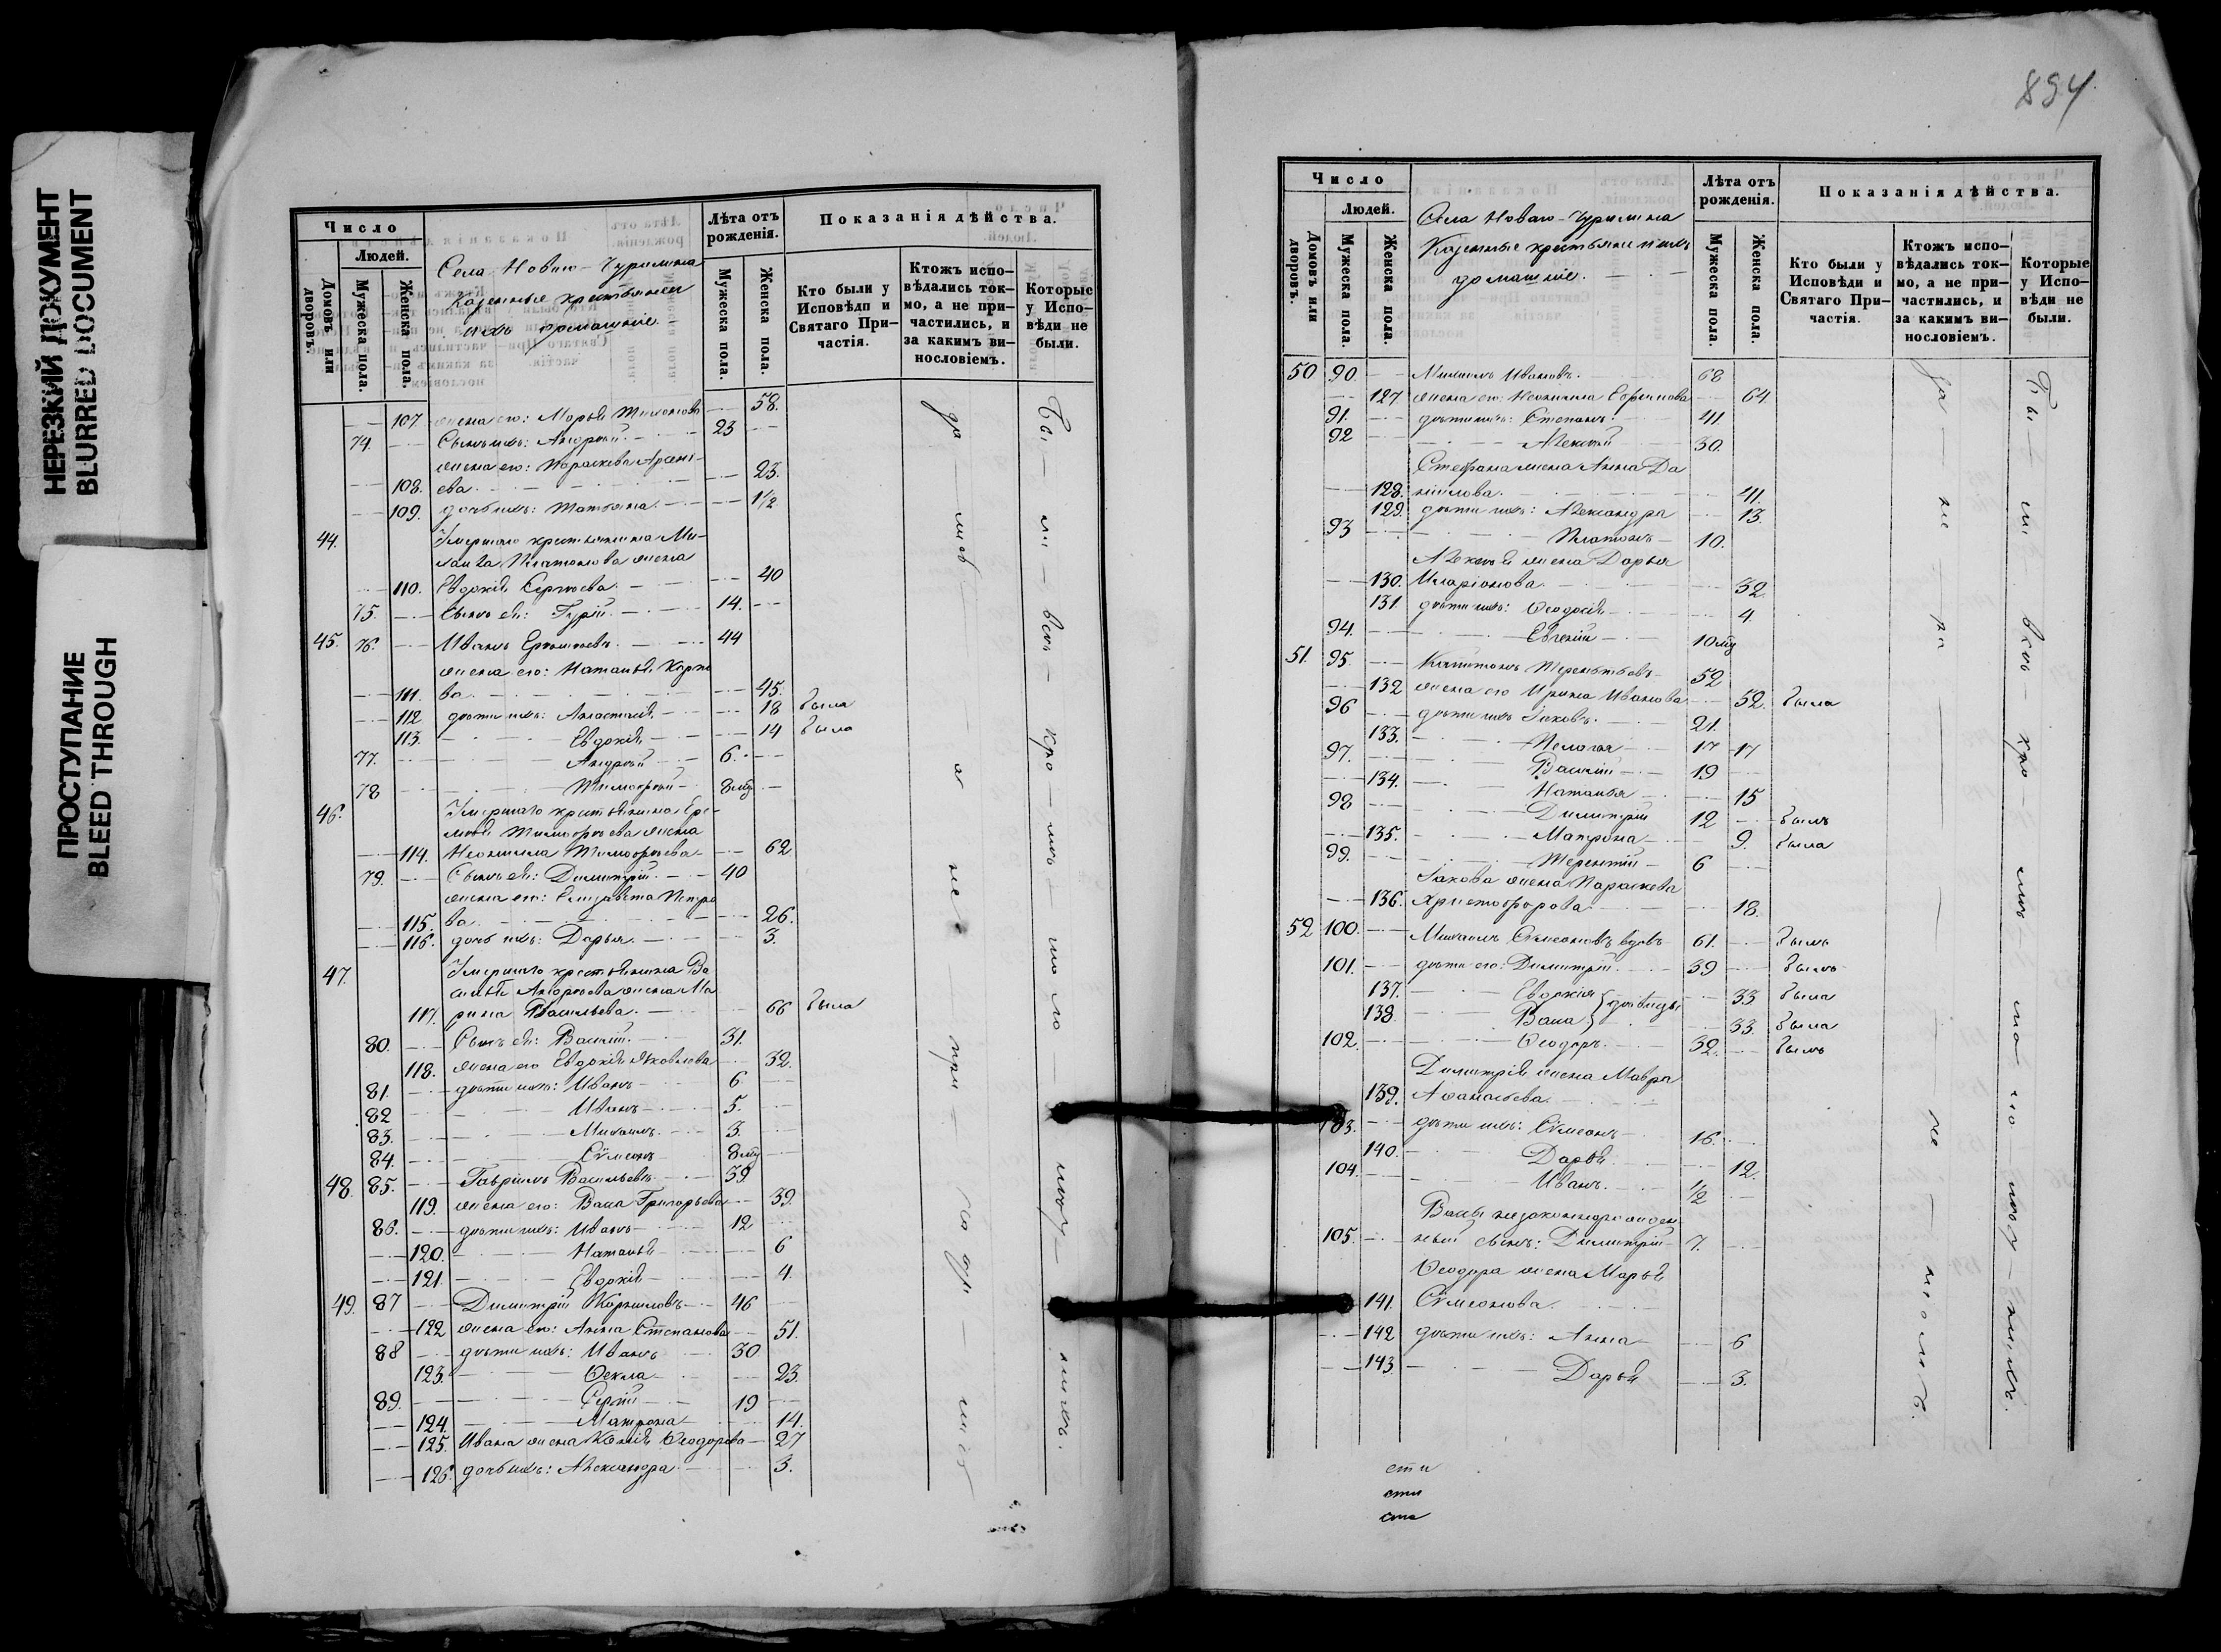 НЕРЕЗКИЙ ДОКУМЕНТ
BLURRED DOCUMENT
ПРОСТУПАНИЕ
BLEED THROUGH
Число
Людей.
Домовъ или дворовъ.
Мужеска пола.
Женска пола.
Села Новаго-Чурилина
Казенные крестьяне и
ихъ домашніе.
Лѣта отъ рожденія.
Мужеска пола.
Женска пола.
Показанія дѣйства.
Кто были у Исповѣди и Святаго Причастія.
Ктожъ исповѣдались токмо, а не причастились, и за какимъ винословіемъ.
Которые у Исповѣди не были.
107. жена его: Марья 58.
74. Сынъ ихъ: Андрей. 23
жена его: Параскева
108. ева. 23.
109. дочь ихъ: Татьяна. 1 1/2
44. Умершаго крестьянина Ми-
хаила Платонова жена
110. Евдокія Сергѣева. 40
75. Сынъ ея: Гурій. 14.
45. 76. Иванъ 44
жена его: Наталья Карпо
111. ва. 45.
112. дѣти ихъ: Анастасія 18 была
113. Евдокія 14 была
77. Андрей 6.
78 Тимофей 8 мѣ
46. Умершаго крестьянина Ере-
мѣя Тимофѣева жена
114. Неонилла Тимофѣева 62
79. Сынъ ея: Димитрій. 40
жена его: Елизавета Петро
115. ва. 26.
116. дочь ихъ: Дарья. 3.
47. Умершаго крестьянина Ва
силья Андреева жена Ма
117. рина Васильева. 66 была
80. Сынъ ея: Василій. 31.
118. жена его Евдокія Яковлева 32.
81. дѣти ихъ: Иванъ 6.
82 Иванъ 5.
83. Михаилъ. 3.
84. Сѵмеонъ 8 мѣ
48. 85. Гавріилъ Васильевъ 39
119. жена его: Васса Григорьева 39.
86. дѣти ихъ: Иванъ 12
120. Наталья 6
121. Евдокія 4.
49. 87 Димитрій Корниловъ 46
122 жена его: Анна Степанова 51.
88 дѣти ихъ: Иванъ 30
123. Ѳекла 23.
89. Сергій 19
124. Матрона 14.
125. Ивана жена Ксенія Ѳеодорова 27
126. дочь ихъ: Александра 3.
894
Число
Людей.
Домовъ или дворовъ.
Мужеска пола.
Женска пола.
Села Новаго-Чурилина
Казенные крестьяне и ихъ
домашніе.
Лѣта отъ рожденія.
Мужеска пола.
Женска пола.
Показанія дѣйства.
Кто были у Исповѣди и Святаго Причастія.
Ктожъ исповѣдались токмо, а не причастились, и за какимъ винословіемъ.
Которые у Исповѣди не были.
50 90. Михаилъ Ивановъ. 68
127. жена его: Неонилла Ефимова 64
91. дѣти ихъ: Степанъ. 41.
92 Алексѣй 30.
Стефана жена Анна Да
128. ніилова. 41.
129. дѣти ихъ: Александра 13.
93 Платонъ 10.
Алексѣя жена Дарья
130. Иларіонова. 32.
131. дѣти ихъ: Ѳеодосія 4.
94. Евгеній 10 мѣ
51. 95. Капитонъ Терентьевъ 52
132 жена его Ирина Иванова 52. была
96 дѣти ихъ Іаковъ. 21.
133. Пелагея 17 17
97. Василій 19
134. Наталья 15
98 Димитрій 12 былъ
135. Матрона 9. была
99. Терентій 6
Іакова жена Параскева
136. Христофорова 18.
52 100. Михаилъ Сѵмеоновъ вдовъ 61. былъ
101. дѣти его: Димитрій. 39 былъ
137. Евдокія } дѣвицы 33 была
138. Васса 33. была
102. Ѳеодоръ. 32. былъ
Димитрія жена Мавра
139. Аѳанасьева.
103. дѣти ихъ: Сѵмеонъ 16.
140. Дарья 12.
104. Иванъ. 1/2
Вассы незаконнорожден
105. ный сынъ: Димитрій 7.
Ѳеодора жена Марья
141. Сѵмеонова.
142 дѣти ихъ: Анна 6
143. Дарья 3.
сти
сти